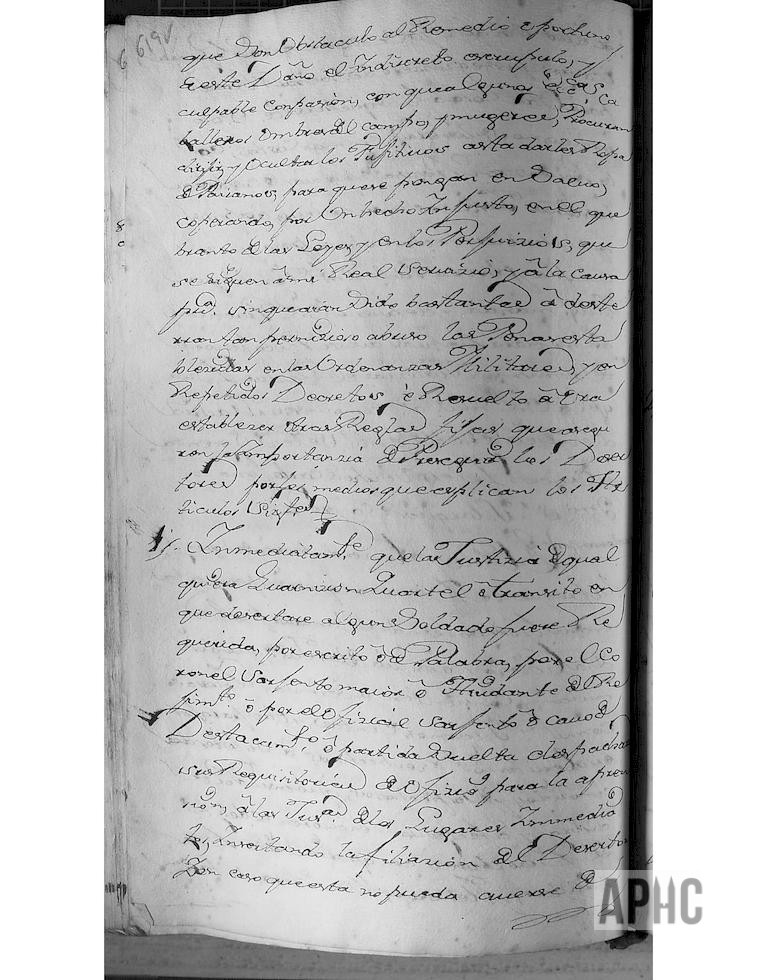 6 619v
que Son Obstaculo al Remedio oportuno
de este Daño el Indiscreto escrupulo, y
culpable Compasion, con que algunos Ca
balleros ombres del campo, y mugeres, Procuran
dirijir, y Ocultar los Fujitivos asta darles Ropa
de Paisanos, para que se pongan en Salvo,
coperando, por Un hecho Injusto, en el que
branto de las Leyes, y en los Perjuizios, que
se siguen â mi Real servizio, y â la causa
puca. sin que aian Sido bastantes â deste
rrar tan pernizioso abuso las Penas esta
blezidas en las Ordenanzas Militares, y en
Repetidos Decretos, è Resuelto â ora
establezer otras Reglas fijas que asegu
ren la Importanzia de Perseguir los Deser
tores por los medios que explican los Ar
ticulos Sigtes
1. Inmediatamte que la Justizia de qual
quiera Guarnizion Quartel ô transito en
que desertare algun Soldado fuere Re
querida, por escrito ô de Palabra, por el Co
ronel Sarjento maior ô Aiudante de Re
jimto ô por el ofizial Sarjento ô cavo de
Destacamto ô partida Suelta despacha
sus Requisitorias de ofizio para la apren
sion, â las Jusas de los Lugares Inmedia
tos, Insertando la filiazion del Desertor
I en caso que esta no pueda averse de
APHC